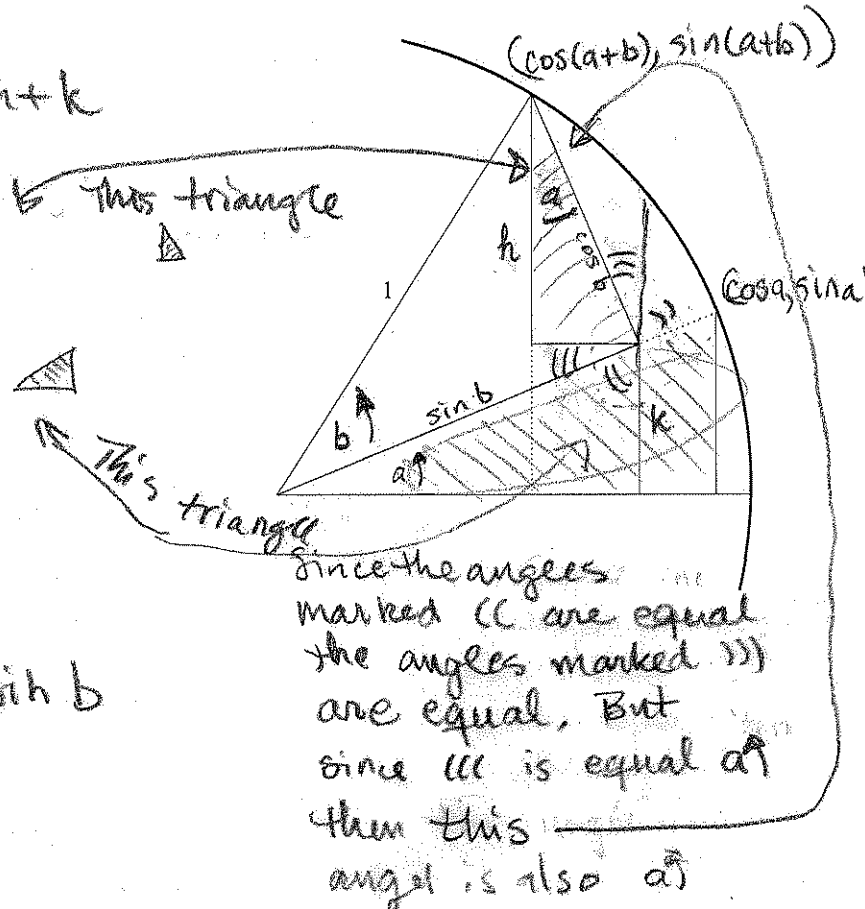 (cos(a+b), sin(a+b))
h+k
This triangle
a
h
cos b
1
(cosa, sina)
sin b
b
k
a
This triangle
Since the angees
marked (( are equal
the angles marked )))
are equal, But
sin b
since ((( is equal a
then this
angel is also a